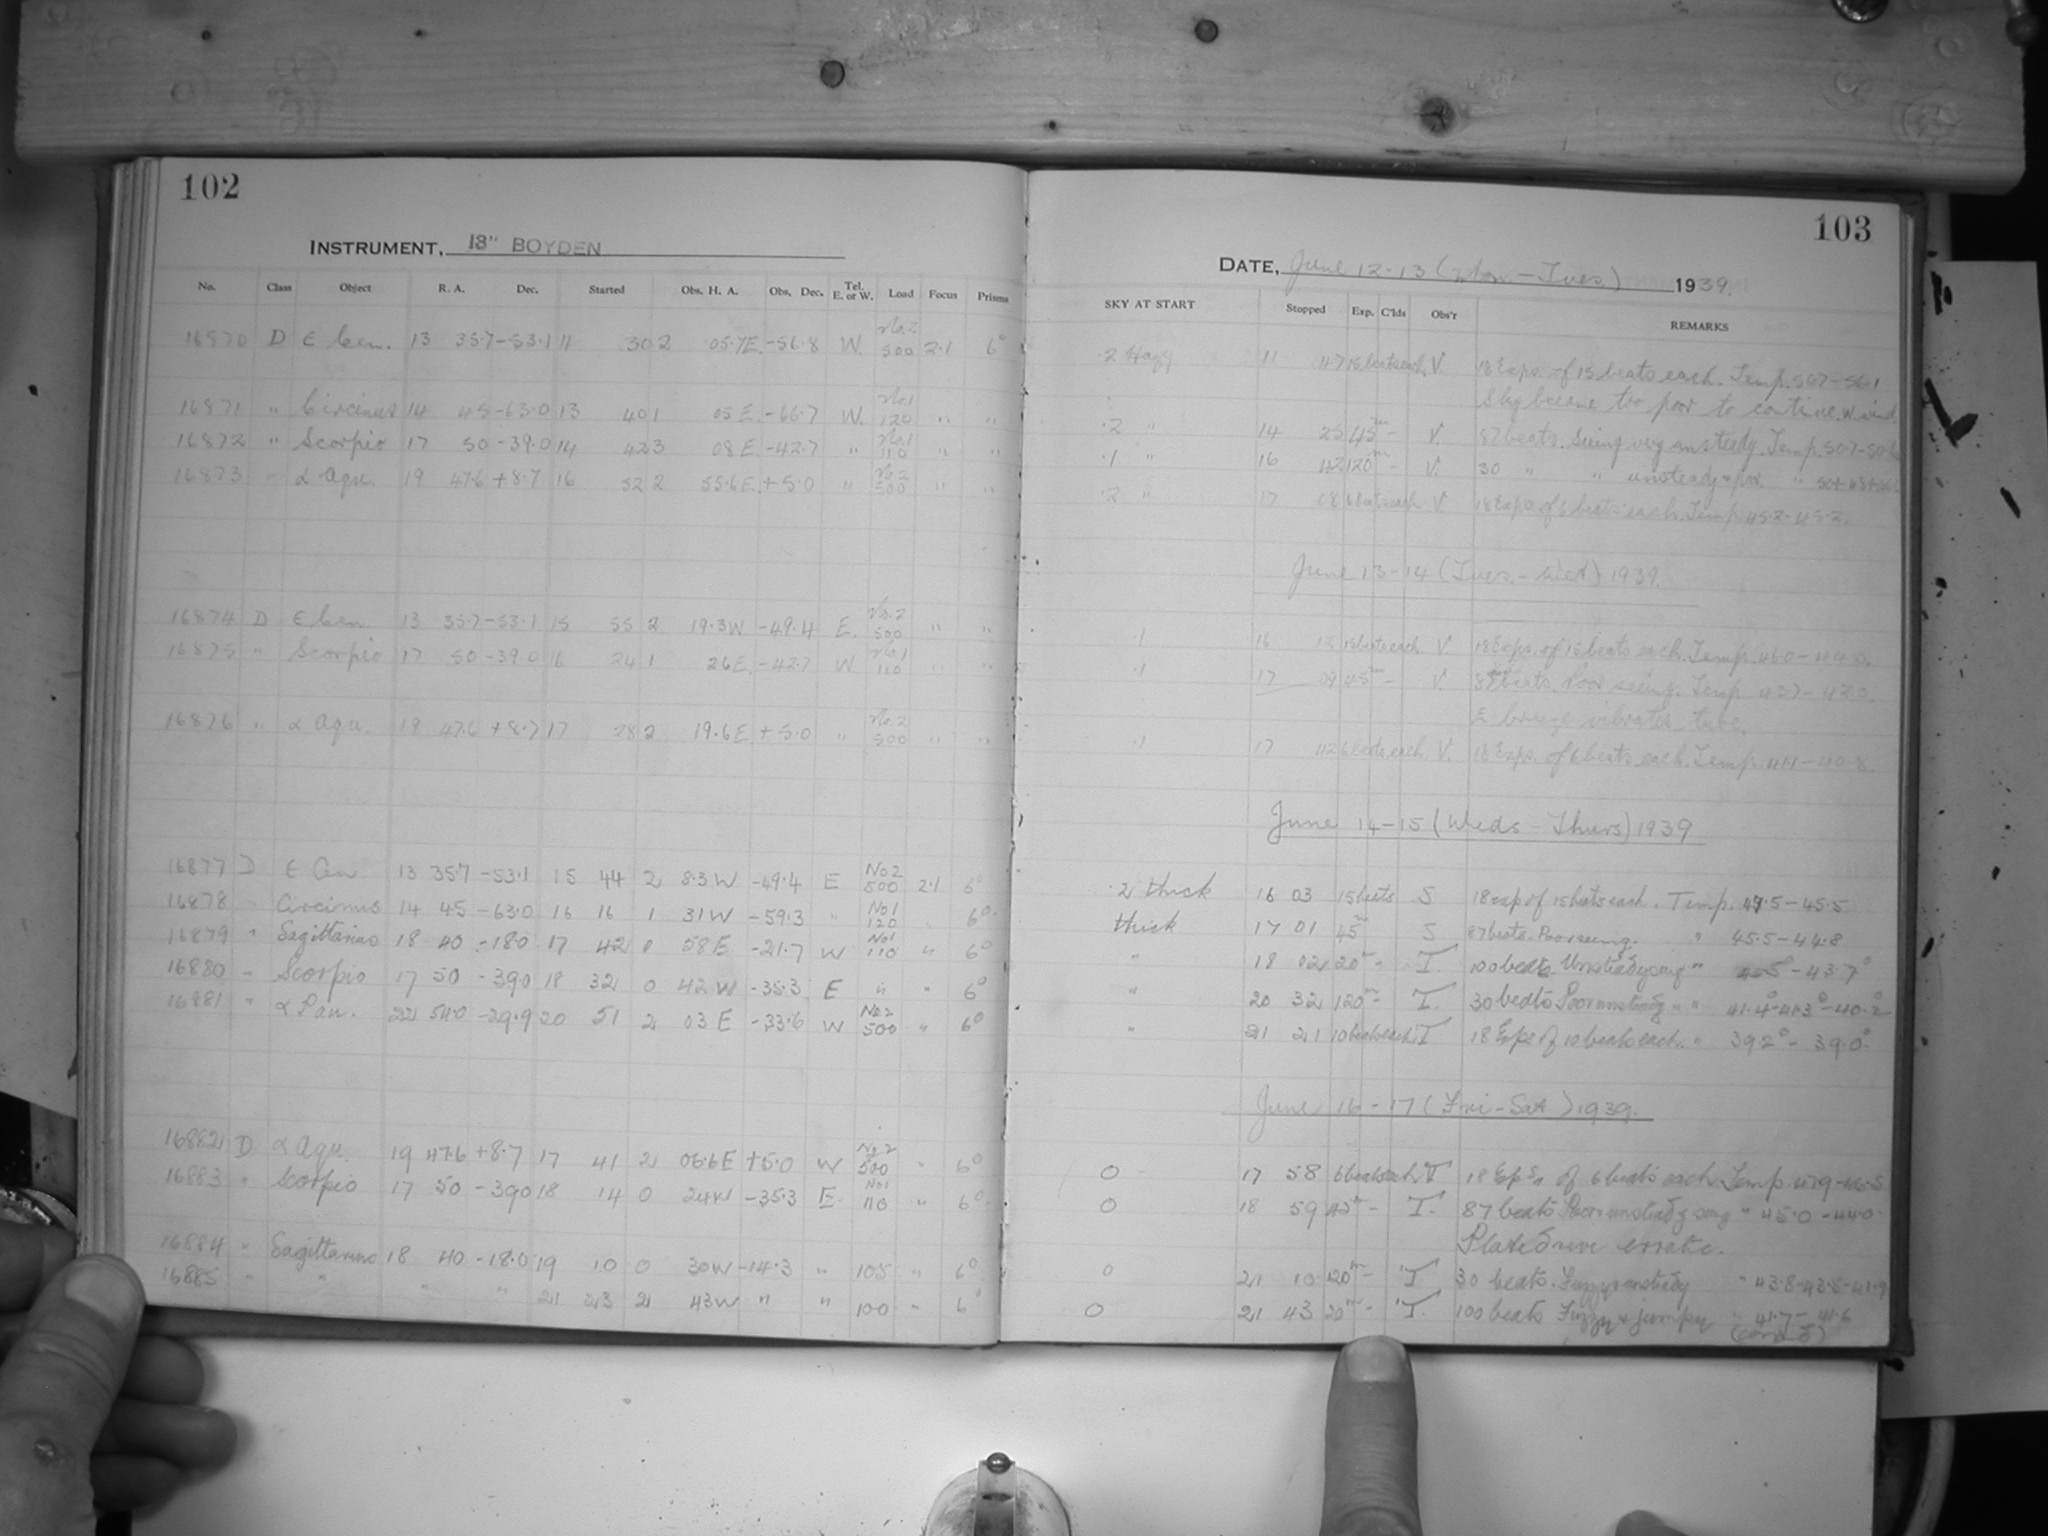 102
INSTRUMENT, 13" BOYDEN
No. Class Object R. A. Dec. Started Obs. H. A. Obs. Dec. Tel. E. or W. Load Focus Prisms
16870 D ε Cen. 13 35.7 -53.1 11 30 2 05.7E. -56.8 W. No.2 500 2.1 6°
16871 " Circinus 14 45 -63.0 13 40 1 05 E. -66.7 W. No.1 120 " "
16872 " Scorpio 17 50 -39.0 14 42 3 08 E. -42.7 " No.1 110 " "
16873 " α Aqu. 19 47.6 +8.7 16 52 2 55.6E. +5.0 " No.2 500 " "
16874 D ε Cen. 13 35.7 -53.1 15 55 2 19.3W -49.4 E. No.2 500 " "
16875 " Scorpio 17 50 -39.0 16 24 1 26 E. -42.7 W No.1 110 " "
16876 " α Aqu. 19 47.6 +8.7 17 28 2 19.6E. +5.0 " No.2 500 " "
16877 D ε Cen 13 35.7 -53.1 15 44 2 8.3W -49.4 E No2 500 2.1 6°
16878 " Circinus 14 45 -63.0 16 16 1 31W -59.3 " No1 120 " 6°
16879 " Sagittarius 18 40 -18.0 17 42 0 58 E -21.7 W No1 110 " 6°
16880 " Scorpio 17 50 -39.0 18 32 0 42 W -35.3 E " " 6°
16881 " 22 54.0 -29.9 20 51 2 03 E -33.6 W No2 500 " 6°
16882 D α Aqu. 19 47.6 +8.7 17 41 2 06.6E +5.0 W No.2 500 " 6°
16883 " Scorpio 17 50 -39.0 18 14 0 24W -35.3 E. No1 110 " 6°
16884 " Sagittarius 18 40 -18.0 19 10 0 30W -14.3 " 105 " 6°
16885 " " " " 21 23 2 43W " " 100 " 6°
103
DATE, June 12-13 (Mon-Tues.) 1939.
SKY AT START Stopped Exp. C'lds Obs'r REMARKS
.2 Hazy 11 47 15 beats each. V. 18 Exps. of 15 beats each. Temp. 56.7-56.1
Sky became too poor to continue. W wind.
.2 " 14 25 45m - V. 87 beats. Seeing very unsteady. Temp. 50.7-50.
.1 " 16 42 120m - V. 30 " " unsteady & poor. "
.2 " 17 08 6 beats each V. 18 Exps. of 6 beats each. Temp. 45.3-45.3.
June 13-14 (Tues.-Wed) 1939.
.1 16 13 15 beats each V. 18 Exps. of 15 beats each. Temp. 46.0-44.5.
.1 17 09 45m - V. 87 beats. Poor seeing. Temp 43.7-42.0.
E breeze vibrates tube.
.1 17 42 6 beats each. V. 18 Exps. of 6 beats each. Temp. 41.1-40.8
June 14-15 (Weds-Thurs) 1939
.2 thick 16 03 15 beats S 18 exp of 15 beats each. Temp. 47.5-45.5
thick 17 01 45m S 87 beats. Poor seeing. " 45.5-44.8
" 18 02 20m - T. 100 beats Unsteady seeing " -43.7°
" 20 32 120m - T. 30 beats Poor unsteady " " 41.4°-41.3°-40.2°
" 21 21 10 beats each T 18 Exps of 10 beats each. " 39.2°- 39.0°
June 16-17 (Fri-Sat) 1939.
0 17 58 6 beats each T 18 Exps of 6 beats each Temp. 47.9-46.5
0 18 59 45m - T. 87 beats Poor unsteady seeing " 45.0-44.0
Plate drive erratic.
0 21 10 120m - T 30 beats. Fuzzy & unsteady " 43.8-43.5-41.9
0 21 43 20m - T. 100 beats Fuzzy & jumpy " 41.7-41.6